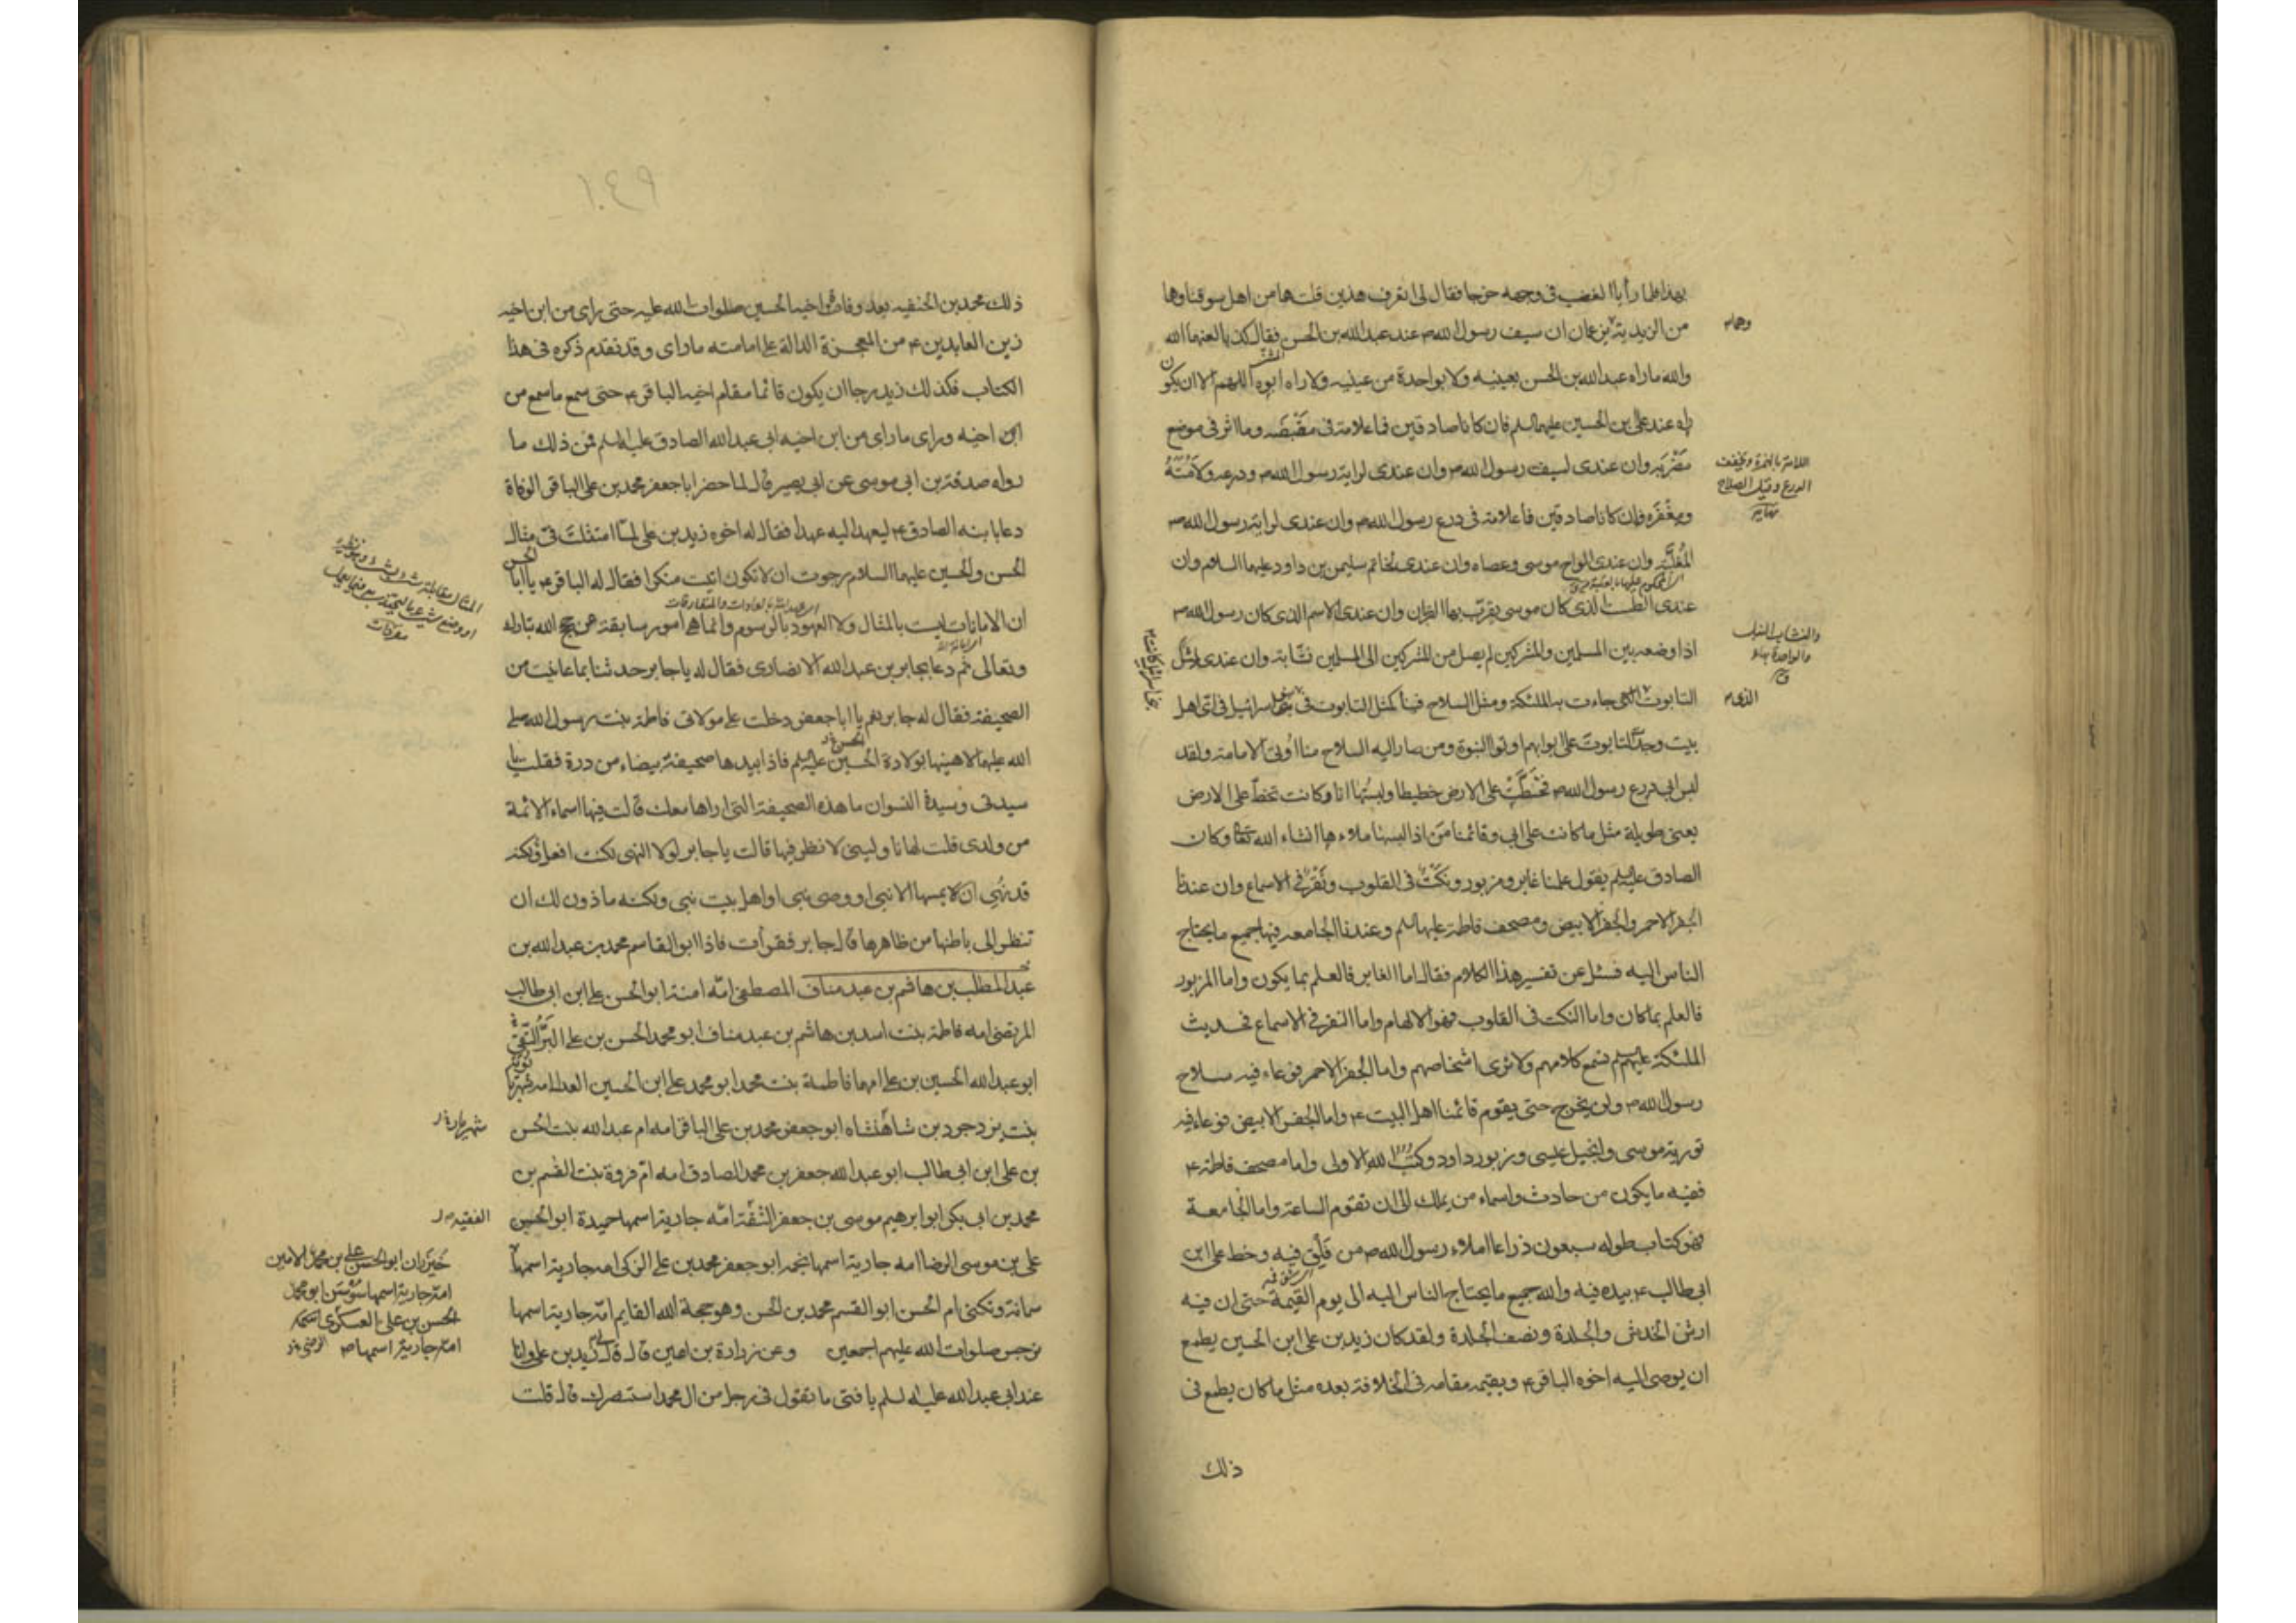 بهذا فلما رأيا الغضب فى وجهه خرجا فقال لى اتعرف هذين قلت هما من اهل سوقنا وهما
من الزيدية يزعمان ان سيف رسول الله ص عند عبد الله بن الحسن فقال كذبا لعنهما الله
والله ماراه عبد الله بن الحسن بعينيه ولا بواحدة من عينيه ولا راه ابوه اللهم الا ان يكون
راه عند على بن الحسين عليهما السلم فان كانا صادقين فما علامة فى مقبضه وما اثر فى موضع
مضربه وان عندى لسيف رسول الله ص وان عندى لراية رسول الله ص ودرعه ولامته
ومغفره فان كانا صادقين فما علامة فى درع رسول الله ص وان عندى لراية رسول الله ص
المغلبة وان عندى الواح موسى وعصاه وان عندى لخاتم سليمن بن داود عليهما السلام وان
عندى الطست الذى كان موسى يقرب بها القربان وان عندى الاسم الذى كان رسول الله ص
اذا وضعه بين المسلمين والمشركين لم يصل من المشركين الى المسلمين نشابة وان عندى لمثل
التابوت التى جاءت به الملئكة ومثل السلاح فينا كمثل التابوت فى بنى اسرائيل فى اى اهل
بيت وجد التابوت على ابوابهم اوتوا النبوة ومن صار اليه السلاح منا اوتى الامامة ولقد
لبس ابى درع رسول الله ص فخطت على الارض خطيطا ولبستها انا وكانت تخط على الارض
يعنى طويلة مثل ما كانت على ابى وقائمنا من اذا لبسها ملاءها انشاء الله تعا وكان
الصادق عليه السلم يقول علمنا غابر ومزبور ونكت فى القلوب ونقر فى الاسماع وان عندنا
الجفر الاحمر والجفر الابيض ومصحف فاطمة عليها السلم وعندنا الجامعه فيها جميع ما يحتاج
الناس اليه فسئل عن تفسير هذا الكلام فقال اما الغابر فالعلم بما يكون واما المزبور
فالعلم بما كان واما النكت فى القلوب فهو الالهام واما النقر فى الاسماع فحديث
الملئكة عليهم السلم نسمع كلامهم ولا نرى اشخاصهم واما الجفر الاحمر فوعاء فيه سلاح
رسول الله ص ولن يخرج حتى يقوم قائمنا اهل البيت ع واما الجفر الابيض فوعاء فيه
تورية موسى وانجيل عيسى وزبور داود وكتب الله الاولى واما مصحف فاطمة ع
ففيه ما يكون من حادث واسماء من يملك الى ان تقوم الساعة واما الجامعة
فهو كتاب طوله سبعون ذراعا املاء رسول الله ص من فلق فيه وخط على ابن
ابى طالب ع بيده فيه والله جميع ما يحتاج الناس اليه الى يوم القيمة حتى ان فيه
ارش الخدش والجلدة ونصف الجلدة ولقد كان زيد بن على ابن الحسين يطمع
ان يوصى اليه اخوه الباقر ع ويقيمه مقامه فى الخلافة بعده مثل ما كان يطمع فى
ذلك
وهما
اللامة بالهمزة وتخفف
الدرع وقيل السلاح
نهاية
والنشاب النبل
والواحدة بهاء
ق
الذى
١٠٤٩
ذلك محمد بن الحنفيه بعد وفات اخيه الحسين صلوات الله عليه حتى راى من ابن اخيه
زين العابدين ع من المعجزة الدالة على امامته ماراى وقد تقدم ذكره فى هذا
الكتاب فكذلك زيد رجا ان يكون قائما مقام اخيه الباقر ع حتى سمع ماسمع من
ابن اخيه وراى ماراى من ابن اخيه ابى عبد الله الصادق عليه السلم فمن ذلك ما
رواه صدقة بن ابى موسى عن ابى بصير قال لما حضر ابا جعفر محمد بن على الباقر الوفاة
دعا بابنه الصادق ع ليعهد اليه عهدا فقال له اخوه زيد بن على لما امتثلت فى مثال
الحسن والحسين عليهما السلام رجوت ان لا تكون اتيت منكرا فقال له الباقر ع يا ابا الحسن
ان الامانات ليست بالمثال ولا العهود بالرسوم وانما هى امور سابقة عن حجج الله تبارك
وتعالى ثم دعا بجابر بن عبد الله الانصارى فقال له يا جابر حدثنا بما عاينت من
الصحيفة فقال له جابر نعم يا ابا جعفر دخلت على مولاتى فاطمة بنت رسول الله صلى
الله عليهما لاهنيها بولادة الحسين عليه السلم فاذا بيدها صحيفة بيضاء من درة فقلت يا
سيدتى وسيدة النسوان ما هذه الصحيفة التى اراها معك قالت فيها اسماء الائمة
من ولدى قلت لها ناولينى لانظر فيها قالت يا جابر لولا النهى لكنت افعل ولكنه
قد نهى ان لا يمسها الا نبى او وصى نبى او اهل بيت نبى ولكنه ماذون لك ان
تنظر الى باطنها من ظاهرها قال جابر فقرأت فاذا ابو القاسم محمد بن عبد الله بن
عبد المطلب بن هاشم بن عبد مناف المصطفى امه امنة ابو الحسن على ابن ابى طالب
المرتضى امه فاطمة بنت اسد بن هاشم بن عبد مناف ابو محمد الحسن بن على البر التقى
ابو عبد الله الحسين بن على امهما فاطمة بنت محمد ابو محمد على ابن الحسين العدل امه شهربانويه
بنت يزدجرد بن شاهنشاه ابو جعفر محمد بن على الباقر امه ام عبد الله بنت الحسن
بن على ابن ابى طالب ابو عبد الله جعفر بن محمد الصادق امه ام فروة بنت القسم بن
محمد بن ابى بكر ابو ابرهيم موسى بن جعفر الثقة امه جارية اسمها حميدة ابو الحسن
على بن موسى الرضا امه جارية اسمها نجمه ابو جعفر محمد بن على الزكى امه جارية اسمها
سمانة وتكنى ام الحسن ابو القسم محمد بن الحسن وهو حجة الله القايم امه جارية اسمها
نرجس صلوات الله عليهم اجمعين وعن زرارة بن اعين قال قال لى زيد بن على وانا
عند ابى عبد الله عليه السلم يا فتى ما تقول فى رجل من ال محمد استنصرك قال قلت
الفقيه
خيزران ابو الحسن على بن محمد الامين
امه جارية اسمها سوسن ابو محمد
الحسن بن على العسكرى
امه جارية اسمها